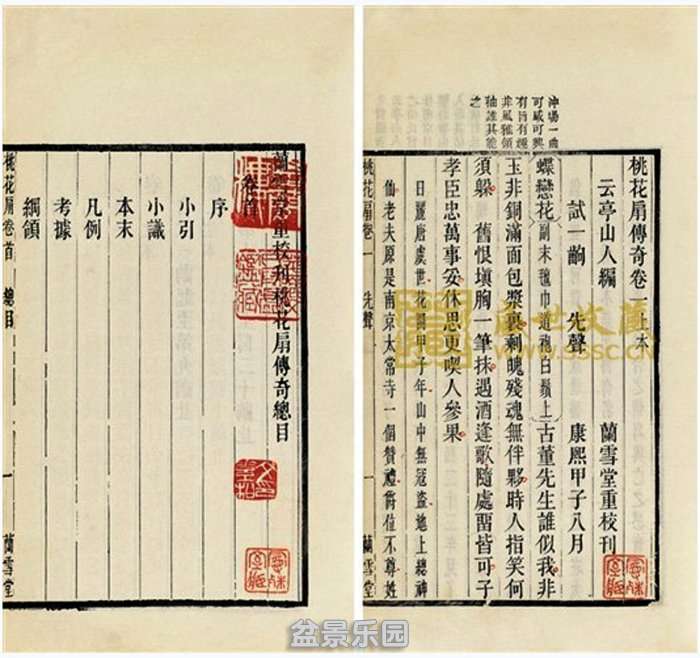 蘭雪堂重校刊桃花扇傳奇總目
卷首
序
小引
小識
本末
凡例
考據
綱領
桃花扇卷首 總目 一 蘭雪堂
沖場一曲
可感可興
有旨有趣
非風雅領
袖誰其能
之
桃花扇傳奇卷一上本
云亭山人編 蘭雪堂重校刊
試一齣 先聲 康熙甲子八月
蝶戀花 副末氊巾道袍白鬚上 古董先生誰似我非
玉非銅滿面包漿裹剩魄殘魂無伴夥時人指笑何
須躲 舊恨塡胸一筆抹遇酒逢歌隨處畱皆可子
孝臣忠萬事妥休思更喫人參果
日麗唐虞世花開甲子年山中無寇盜地上總神
仙老夫原是南京太常寺一個贊禮爵位不尊姓
桃花扇卷一 先聲 一 蘭雪堂
盛世文藏
www.sssc.cn
盆景乐园